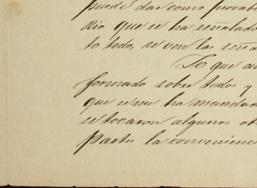 puede dar como probab
dio que se ha señalado
to todo, se ven las seña
Lo que
formado sobre todos y
que se me ha mandado
se tocaron algunos
parte la convenienc